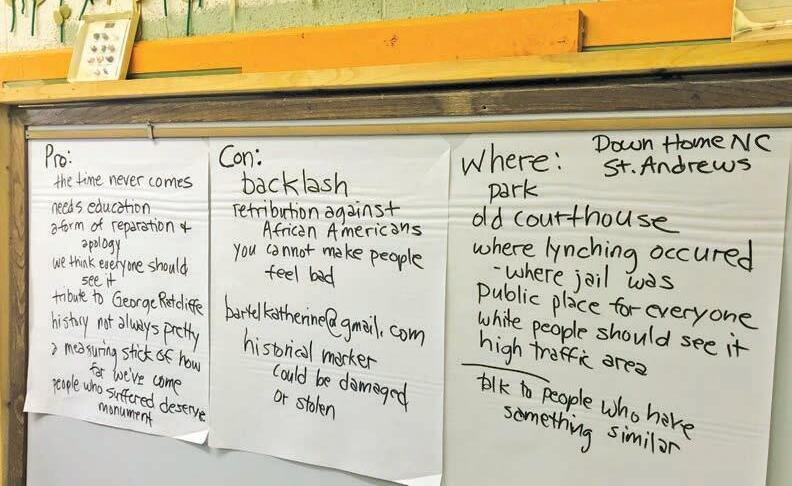 Pro:
the time never comes
needs education
a form of reparation +
apology
we think everyone should
see it
tribute to George Ratcliffe
history not always pretty
a measuring stick of how
far we've come
people who suffered deserve
monument
Con:
backlash
retribution against
African Americans
you cannot make people
feel bad
bartelkatherine@gmail.com
historical marker
could be damaged
or stolen
Down Home NC
St. Andrews
Where:
park
old courthouse
where lynching occured
- where jail was
Public place for everyone
white people should see it
high traffic area
talk to people who have
something similar